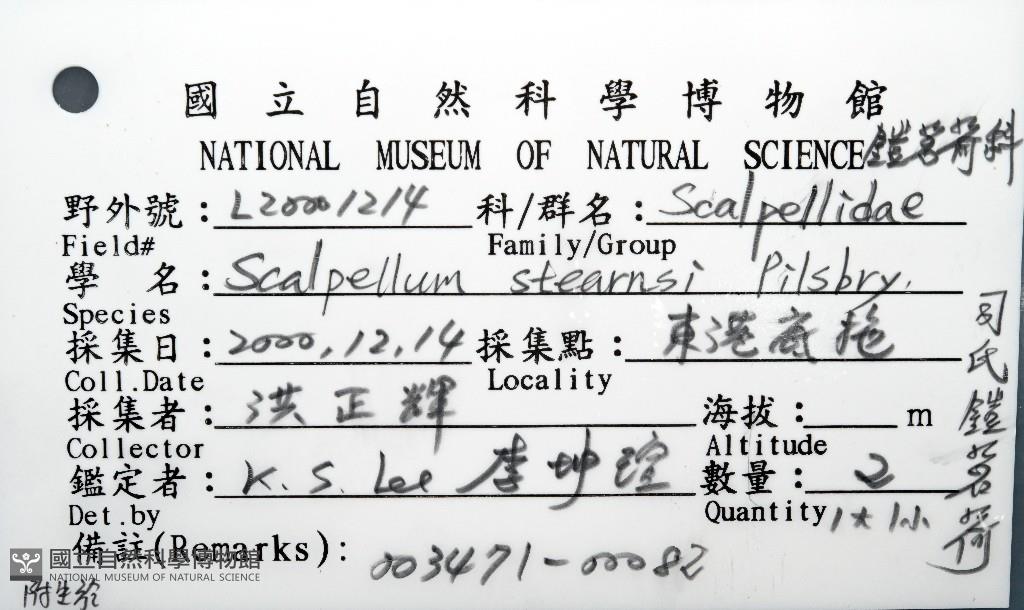 國立自然科學博物館
NATIONAL MUSEUM OF NATURAL SCIENCE 鎧茗荷科
野外號：L20001214 科/群名：Scalpellidae
Field# Family/Group
學 名：Scalpellum stearnsi Pilsbry.
Species
採集日：2000.12.14 採集點：東港底拖
Coll.Date Locality
採集者：洪正輝 海拔：____m
Collector Altitude
鑑定者：K.S. Lee 李坤瑄 數量：2
Det.by Quantity 1大1小
備註(Remarks): 003471-00082
司氏鎧茗荷
國立自然科學博物館
NATIONAL MUSEUM OF NATURAL SCIENCE
附生於